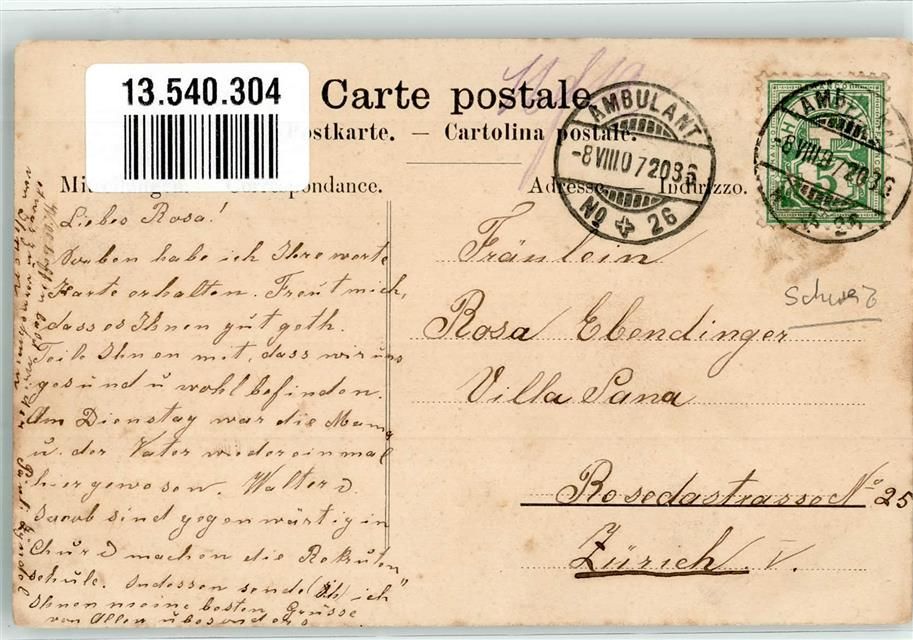 13.540.304
Carte postale.
Postkarte. — Cartolina postale.
Correspondance.
Adresse. — Indirizzo.
AMBULANT
-8 VIII 07 2036
No 26
AMBULANT
-8 VIII 07 2036
5
Schweiz
Fräulein
Rosa Ebendinger
Villa Sana
Rosedastrasse No 25
Zürich V.
Liebes Rosa!
Soeben habe ich Ihre werte
Karte erhalten. Freut mich,
dass es Ihnen gut geth.
Teile Ihnen mit, dass wir uns
gesund u wohl befinden.
Am Dienstag war die Mama
u. der Vater wieder einmal
hier gewesen. Walter &
Jacob sind gegenwärtig in
Chur & machen die Rekruten
schule. Indessen sende ich
Ihnen meine besten Grüsse
von Allen u besonders